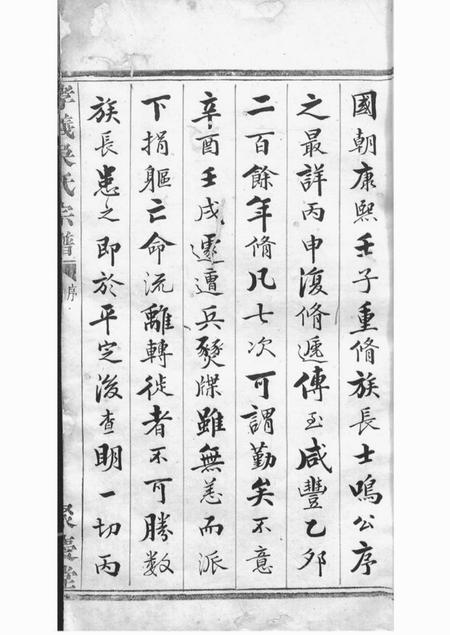 國朝康熙壬子重脩族長士鳴公序
之最詳丙申復脩遞傳至咸豐乙夘
二百餘年脩凡七次可謂勤矣不意
辛酉壬戌遽遭兵燹牒雖無恙而派
下捐軀亡命流離轉徙者不可勝数
族長患之即於平定後查明一切丙
孝義吳氏宗譜
序
聚慶堂